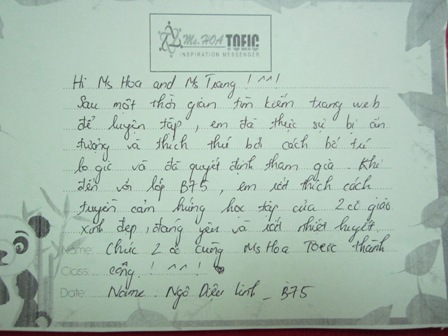 Ms. HOA TOEIC
INSPIRATION MESSENGER
Hi Ms Hoa and Ms Trang ! ^^ !
Sau một thời gian tìm kiếm trang web
để luyện tập, em đã thực sự bị ấn
tượng và thích thú bởi cách bố trí
logic và đã quyết định tham gia. Khi
đến với lớp B75, em rất thích cách
truyền cảm hứng học tập của 2 cô giáo
xinh đẹp, đáng yêu và rất nhiệt huyết.
Name: Chúc 2 cô cùng Ms Hoa Toeic thành
Class: công ! ^^ !
Date: Name: Ngô Diệu Linh _ B75